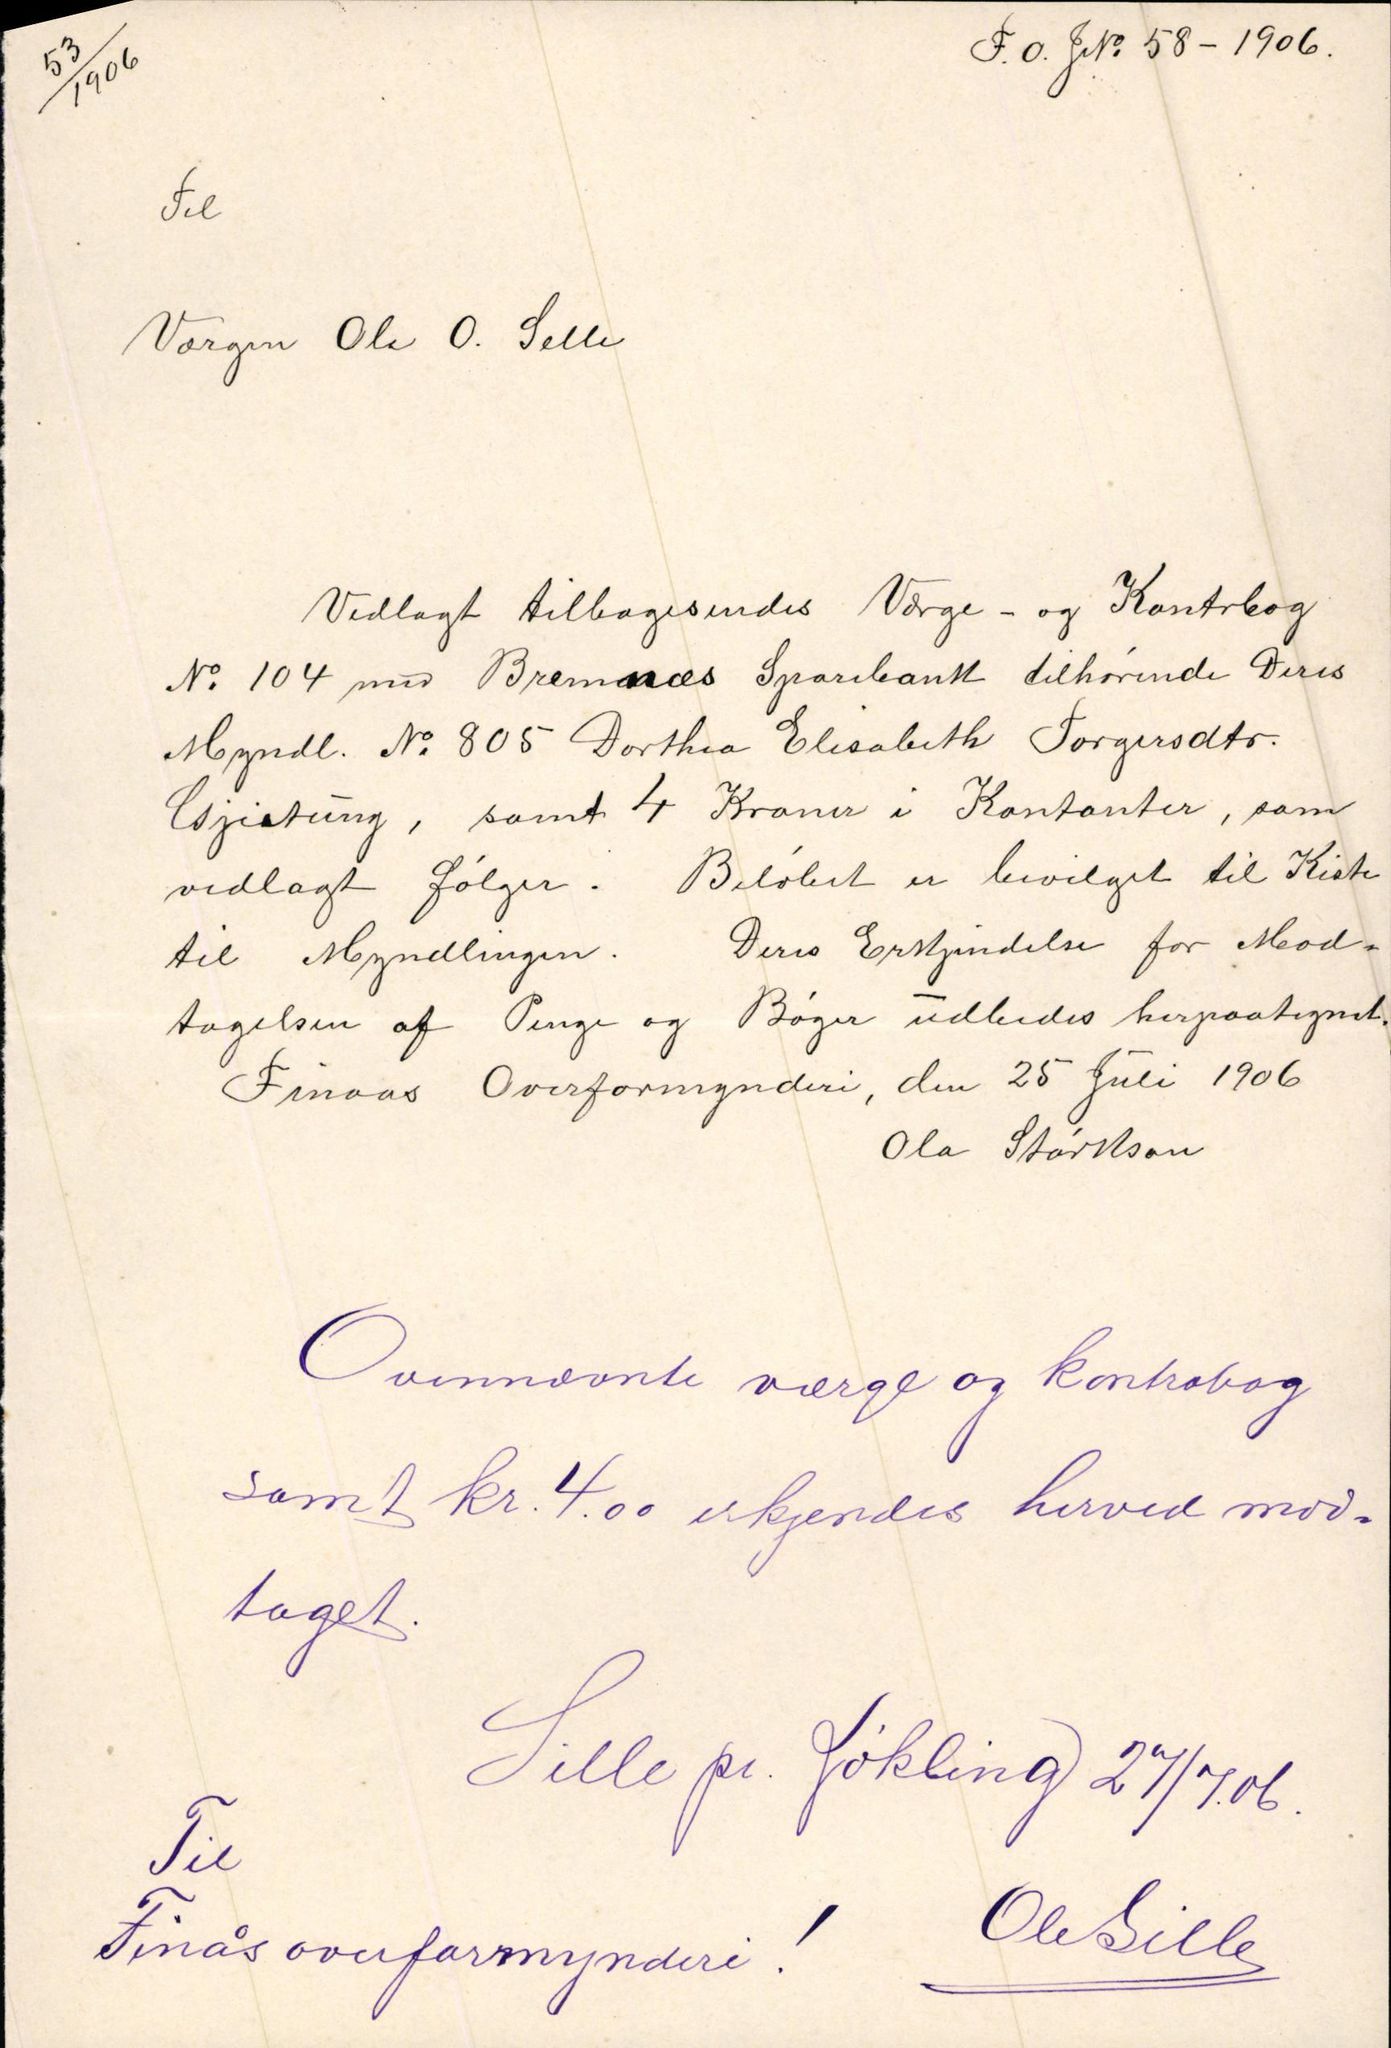 53/1906
F. O. J№. 58 - 1906.
Til
Værgen Ole O. Selle
Vedlagt tilbagesendes Værge - og Kontrbog
№. 104 med Bremanæs Sparebank tilhørende Deres
Myndl. №. 805 Dorthea Elisabeth Torgersdtr.
samt 4 Kroner i Kontanter, som
vedlagt følger. Beløbet er bevilget til Kiste
til Myndlingen. Deres Erkjendelse for Mod-
tagelsen af Penge og Bøger udbedes herpaategnet.
Finaas Overformynderi, den 25 Juli 1906
Ola Størkson
Ovennævnte værge og kontrabog
samt kr. 4.00 erkjendes herved mod-
taget.
Selle pr. Jøkling 27/7.06.
Til
Finås overformynderi!
Ole Selle